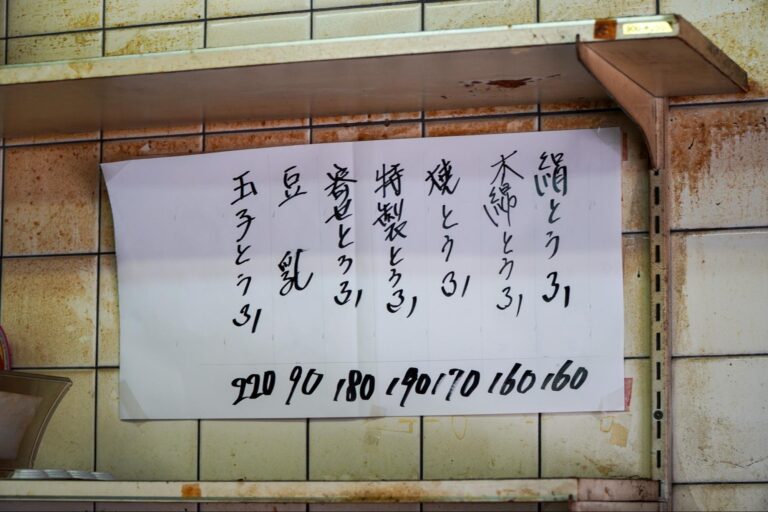 絹とうふ 160
木綿とうふ 160
焼とうふ 170
特製とうふ 190
寄せとうふ 180
豆乳 90
玉子とうふ 220